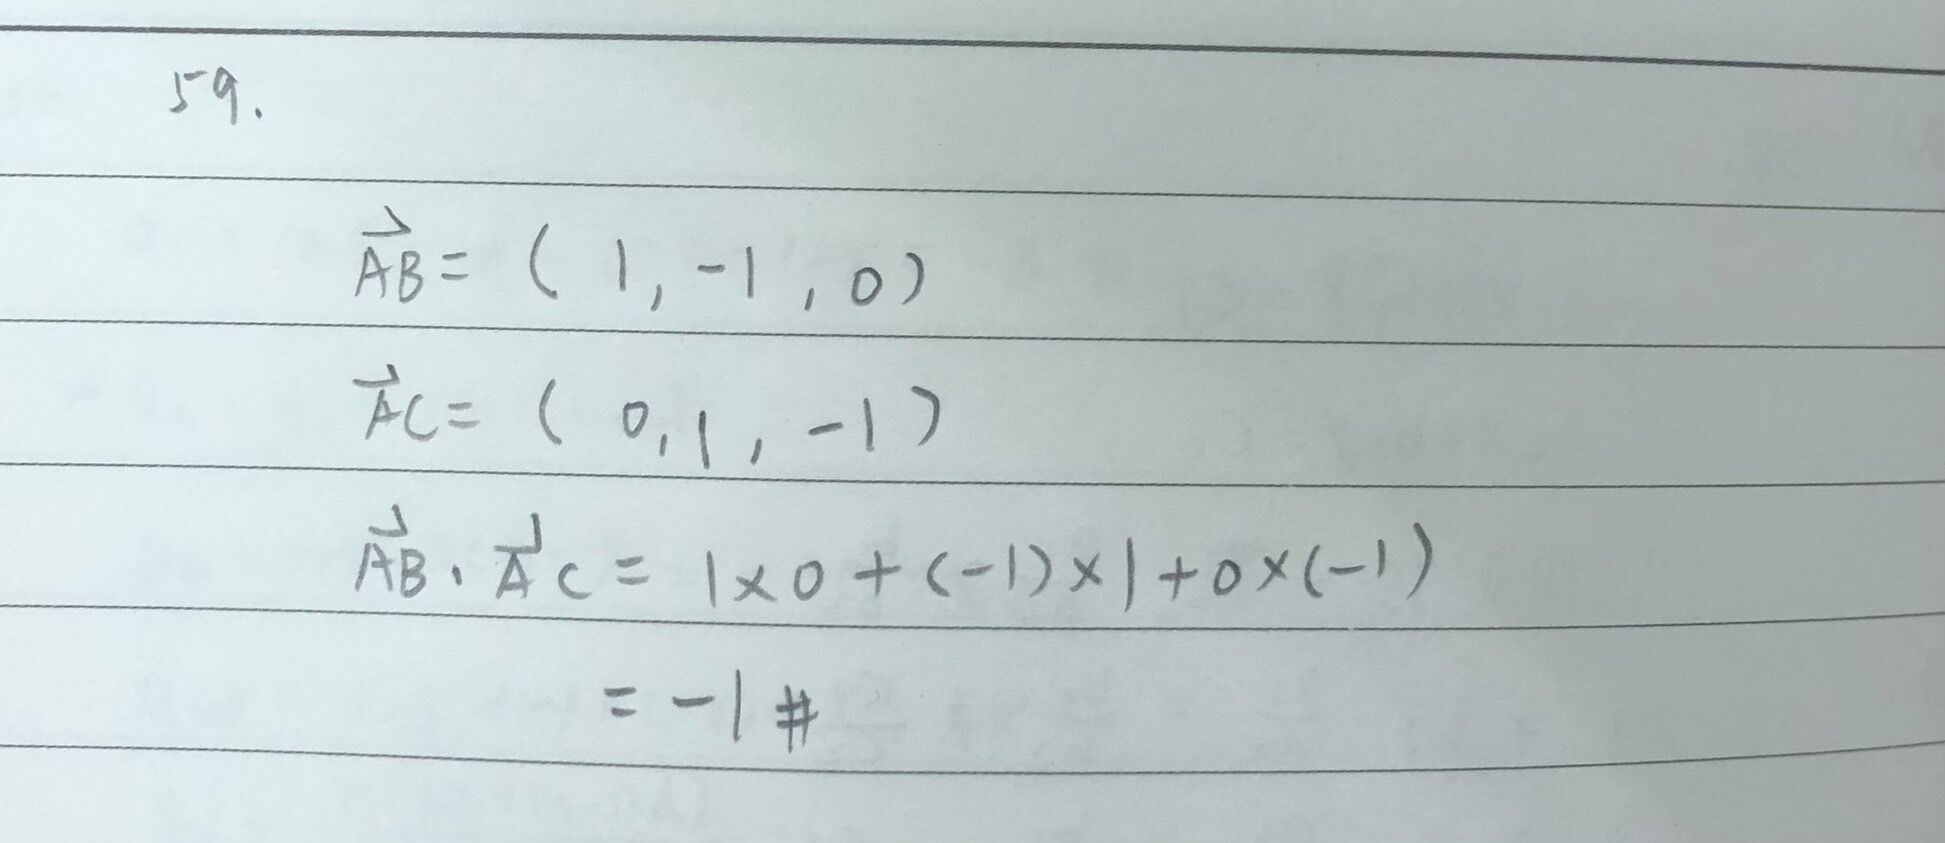 59.
$\vec{AB} = (1, -1, 0)$
$\vec{AC} = (0, 1, -1)$
$\vec{AB} \cdot \vec{AC} = 1 \times 0 + (-1) \times 1 + 0 \times (-1)$
$= -1 \#$